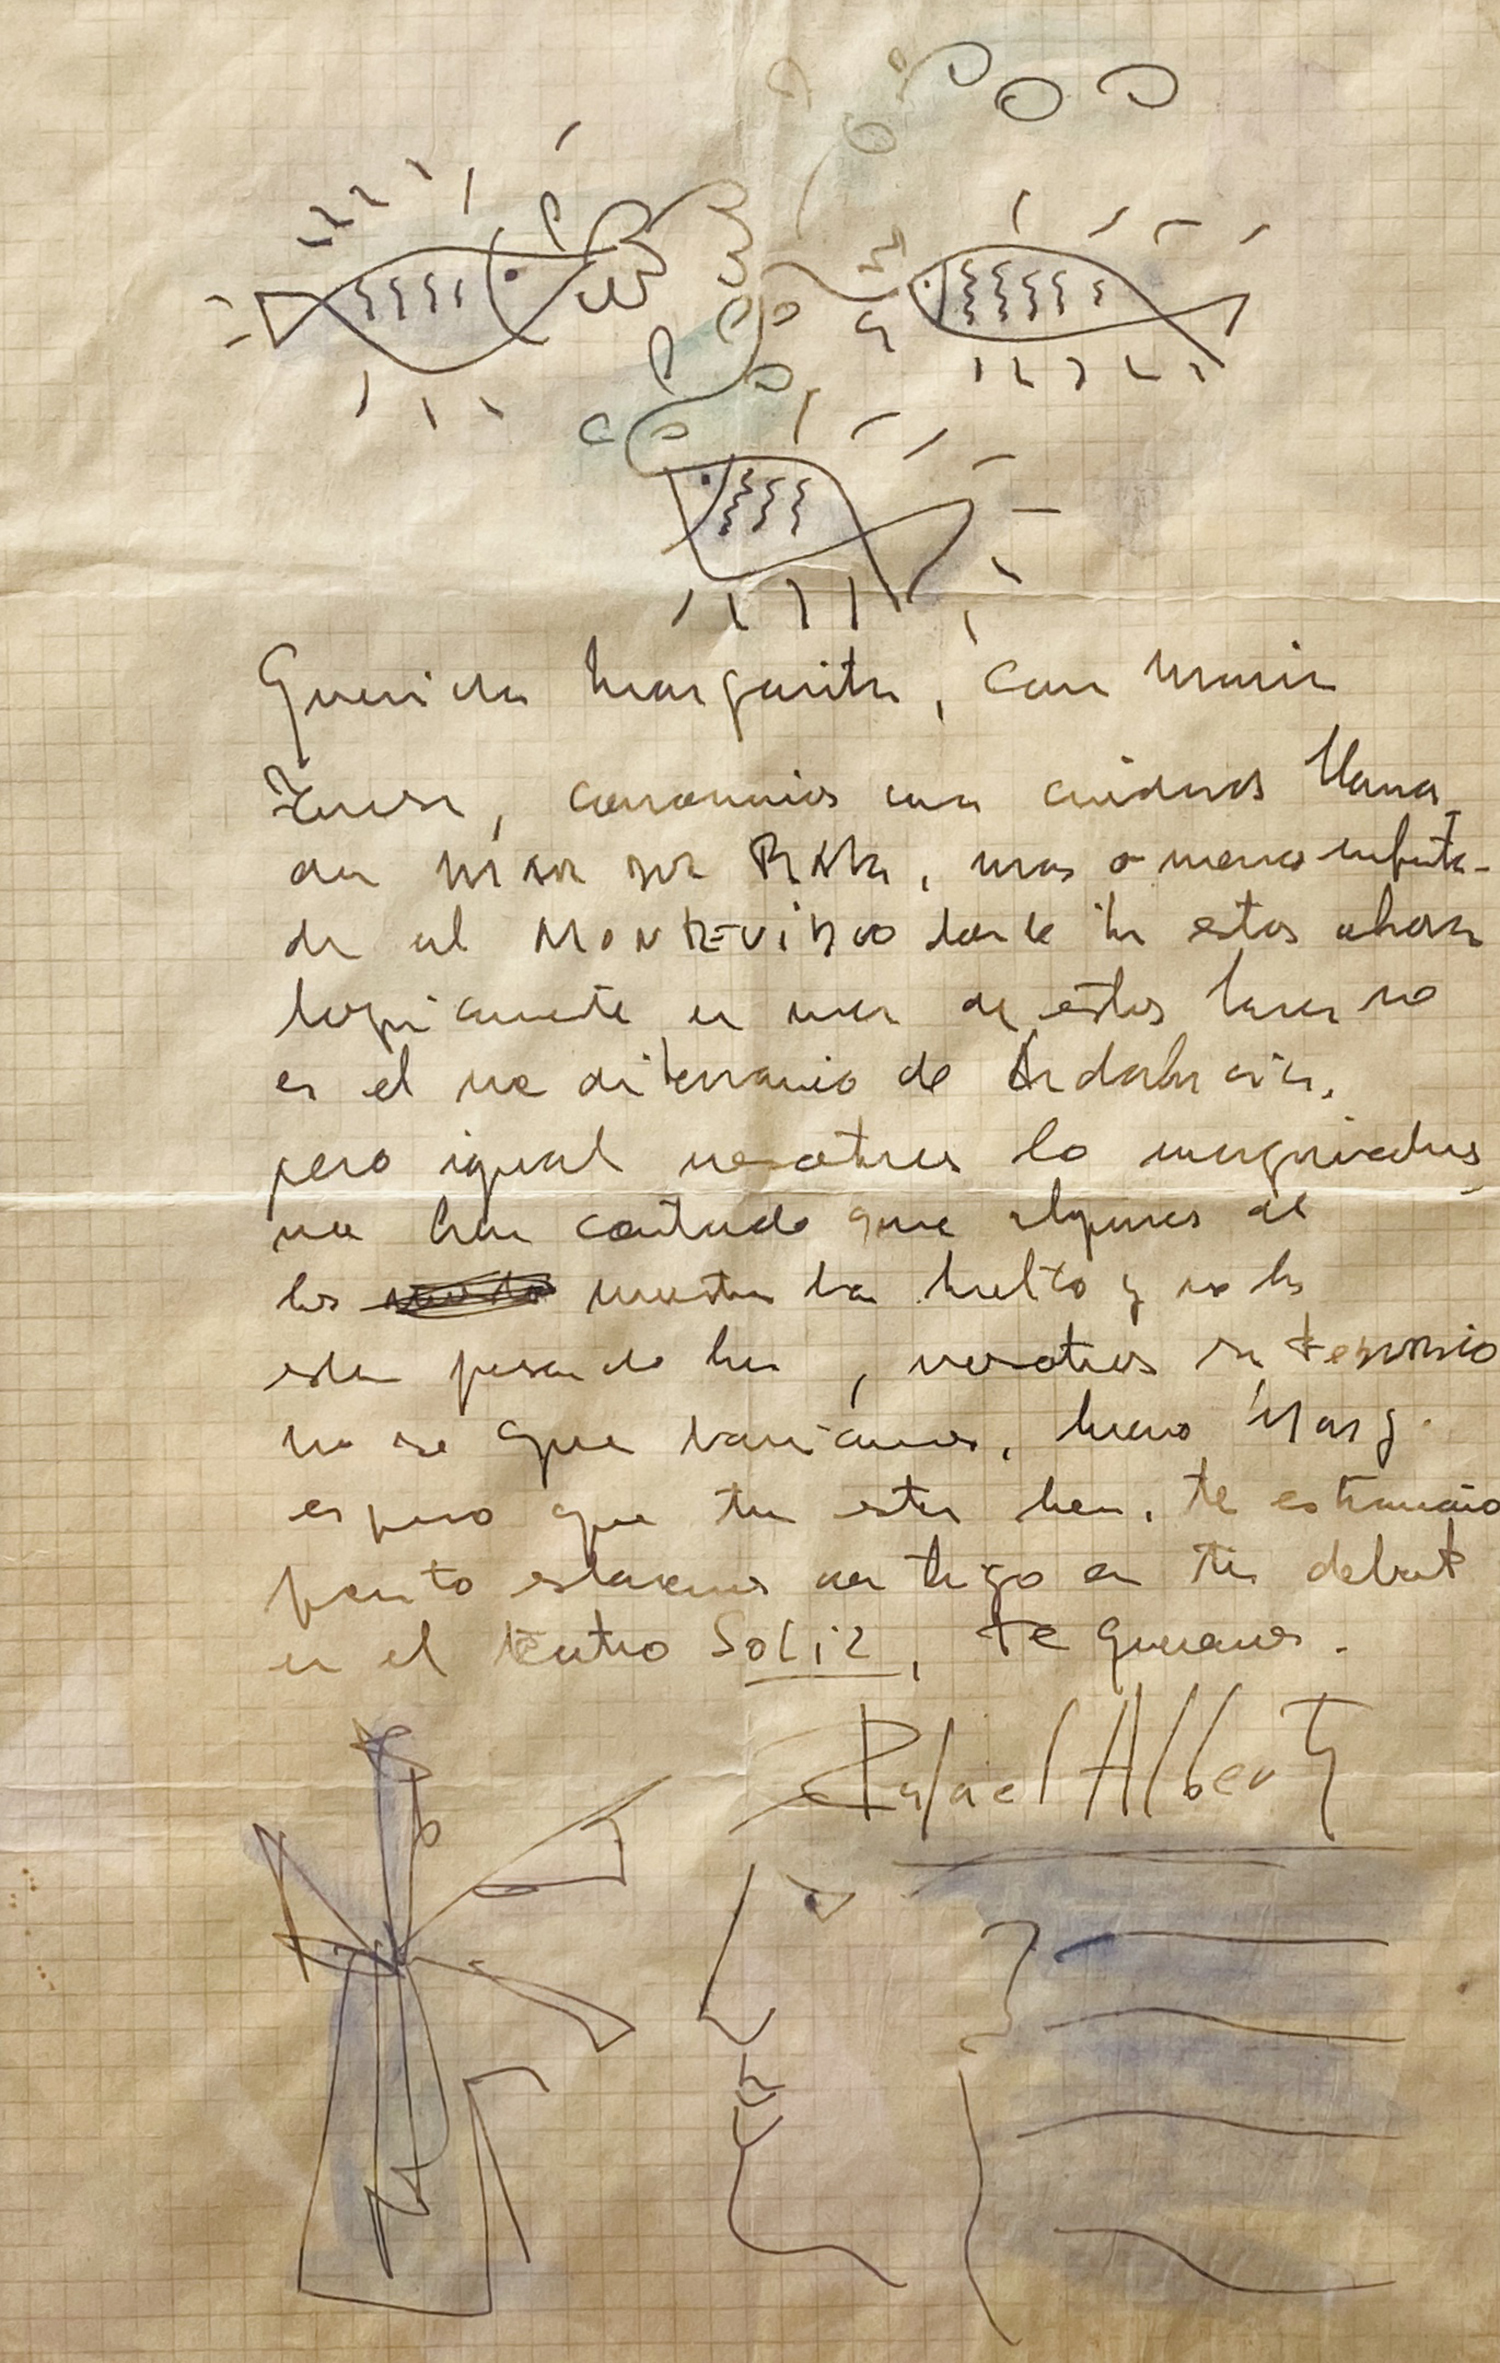 Querida Margarita, con Maria
Teresa, conocimos una ciudad llama
da MAR DEL PLATA, mas o menos
de al MONTEVIDEO donde tu estas ahora
logicamente el mar de estos lares no
es el mediterraneo de Andalucia,
pero igual nosotros lo
me han contado que algunos de
los nuestros ha vuelto y no la
estan pasando bien, nosotros
no se que hariamos, bueno Marg.
espero que tu estes bien, te extraño
pronto estaremos contigo en tu debut
en el teatro SOLIS, te queremos.
Rafael Alberti